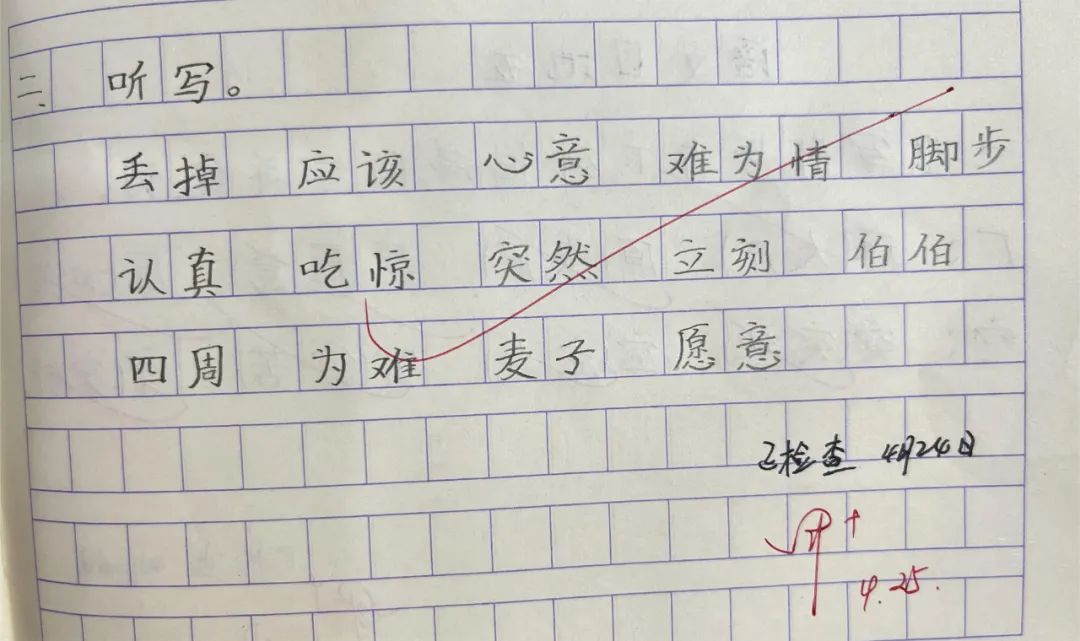 二、听写。
丢掉 应该 心意 难为情 脚步
认真 吃惊 突然 立刻 伯伯
四周 为难 麦子 愿意
已检查 4月24日
甲+
4.25.